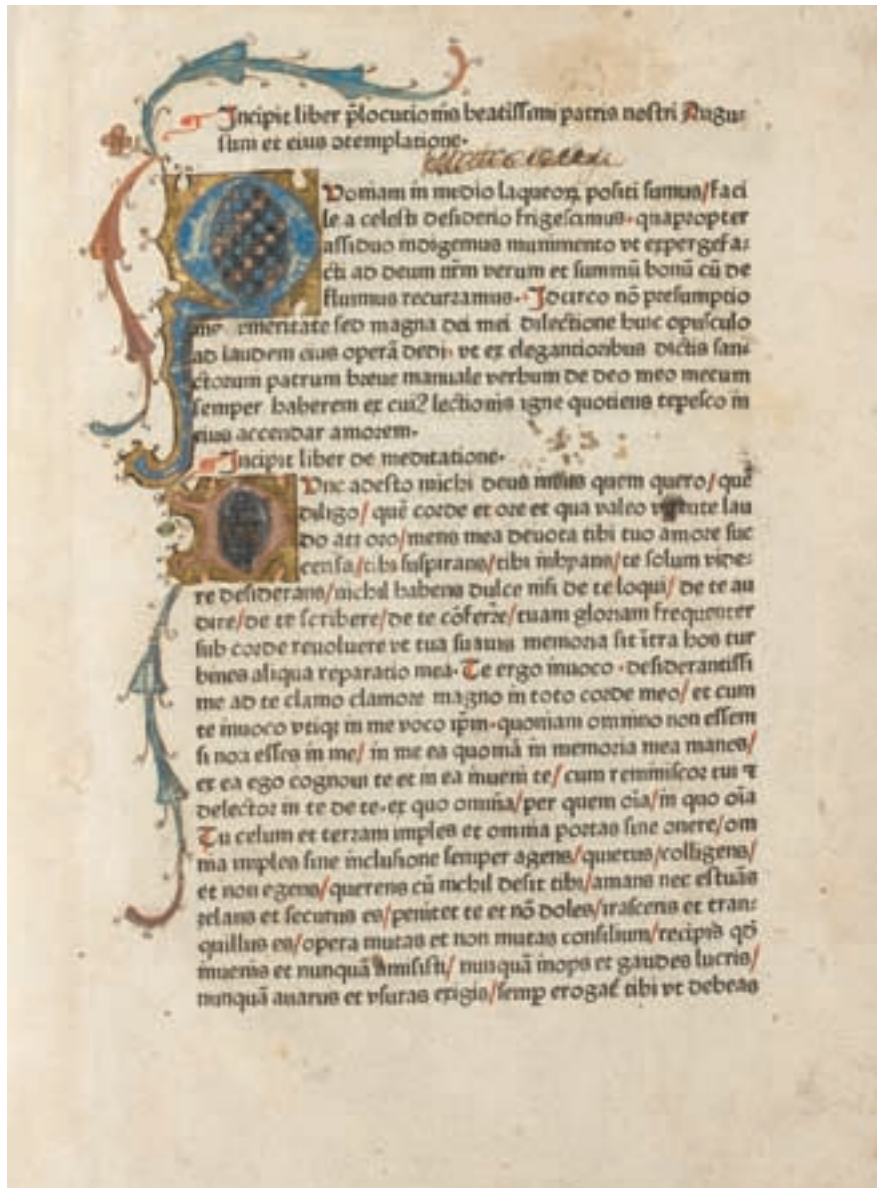 Incipit liber p̄locutionis beatissimi patris nostri Augu-
stini et eius ɔtemplatione.
Voniam in medio laqueoꝝ positi sumus/faci
le a celesti desiderio frigescimus. quapropter
assiduo indigemus munimento vt expergefa-
cti ad deum nr̄m verum et summū bonū cū de
fluimus recurramus. Idcirco nō presumptio
ne emeritate sed magna dei mei dilectione huic opusculo
ad laudem eius operā dedi. vt ex elegantioribus dictis san
ctorum patrum breue manuale verbum de deo meo mecum
semper haberem ex cui? lectionis igne quotiens tepesco in
eius accendar amorem.
Incipit liber de meditatione.
Vnc adesto michi deus meus quem quero/quē
diligo/ quē corde et ore et qua valeo virtute lau
do atꝫ oro/mens mea deuota tibi tuo amore suc
censa/tibi suspirans/tibi inhyans/te solum vide-
re desiderans/nichil habens dulce nisi de te loqui/ de te au
dire/de te scribere/de te cōferre/tuam gloriam frequenter
sub corde reuoluere vt tua suauis memoria sit ītra hos tur
bines aliqua reparatio mea. Te ergo inuoco .desiderantissi
me ad te clamo clamore magno in toto corde meo/ et cum
te inuoco vtiqꝫ in me voco ip̄m.quoniam omnino non essem
si non esses in me/ in me ea quoniā in memoria mea manes/
ex ea ego cognoui te et in ea inueni te/ cum reminiscor tui ⁊
delector in te de te.ex quo omnia/per quem oīa/in quo oīa
Tu celum et terram imples et omnia portas sine onere/om
nia imples sine inclusione semper agens/quietus/colligens/
et non egens/querens cū nichil desit tibi/amans nec estuās
zelans et securus es/penitet te et nō doles/irascens et tran-
quillus es/opera mutas et non mutas consilium/recipis qd̄
inuenis et nunquā amisisti/ nunquā inops et gaudes lucris/
nunquā auarus et vsuras exigis/semp erogat̄ tibi vt debeas